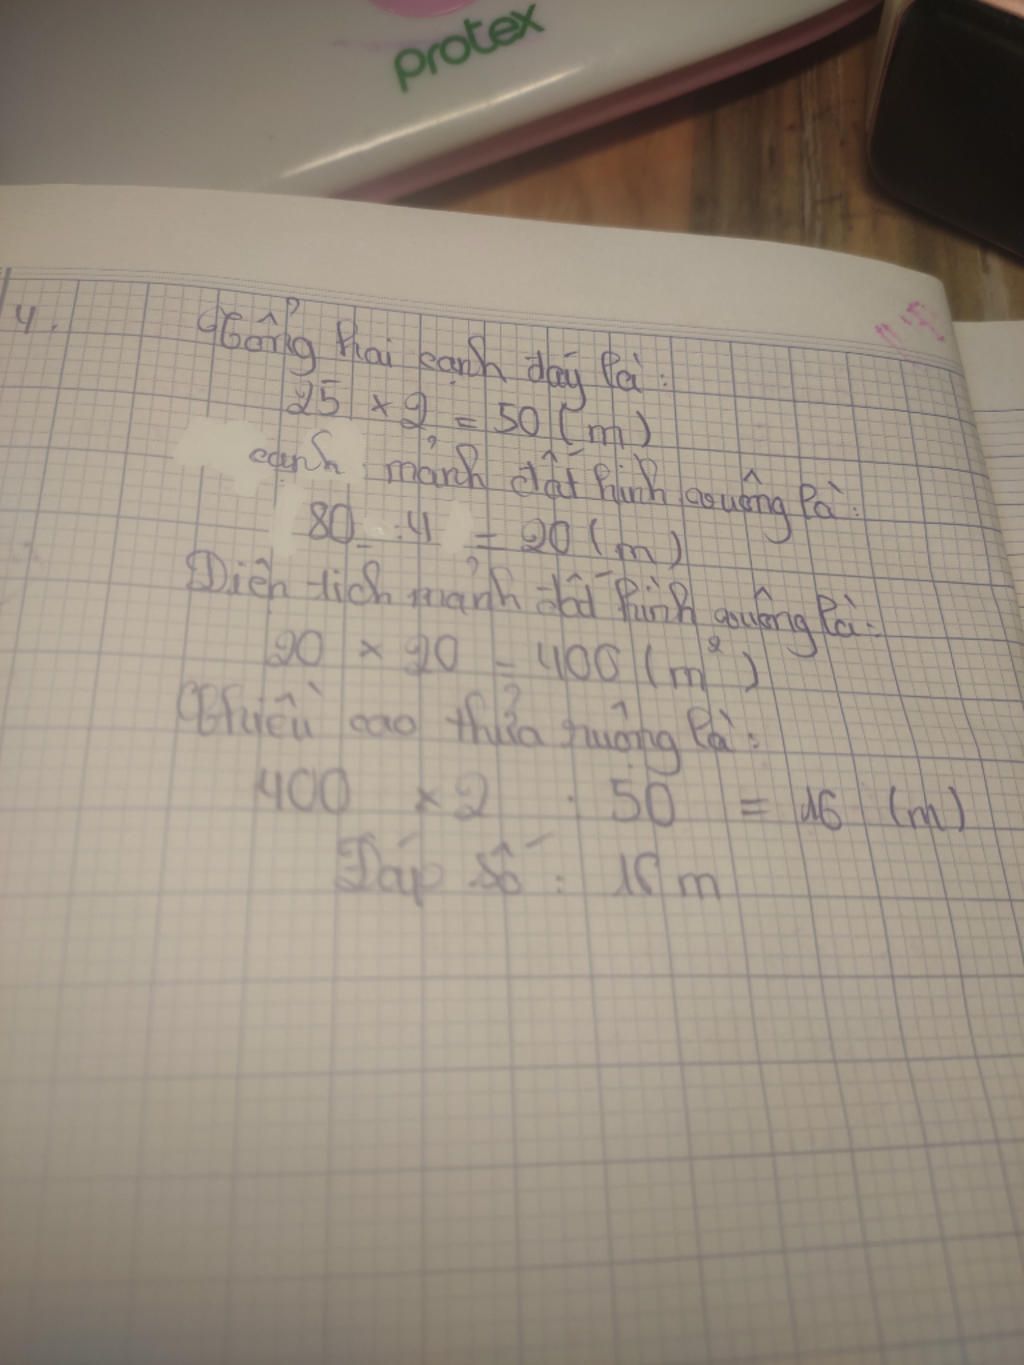 protex
4.
Tổng hai cạnh đáy là:
25 × 2 = 50 (m)
cạnh mảnh đất hình vuông là:
80 : 4 = 20 (m)
Diện tích mảnh đất hình vuông là:
20 × 20 = 400 (m²)
Chiều cao thửa ruộng là:
400 × 2 : 50 = 16 (m)
Đáp số : 16 m